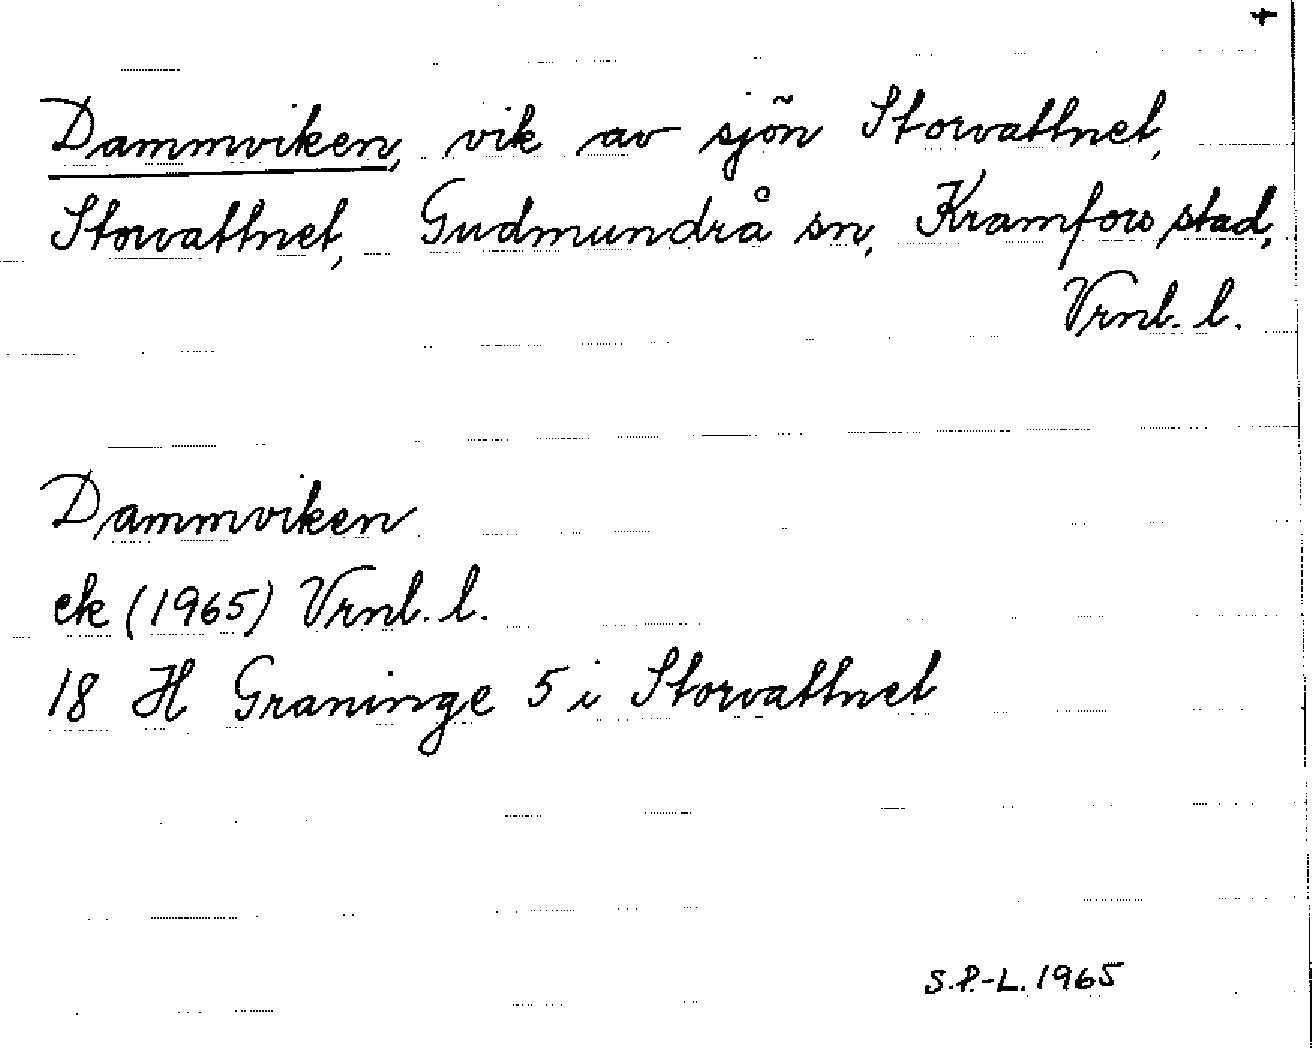 +
Dammviken, vik av sjön Storvattnet,
Storvattnet, Gudmundrå sn, Kramfors stad,
Vrnl. l.
Dammviken
ek (1965) Vrnl. l.
18 H Graninge 5 i Storvattnet
S.P.-L. 1965